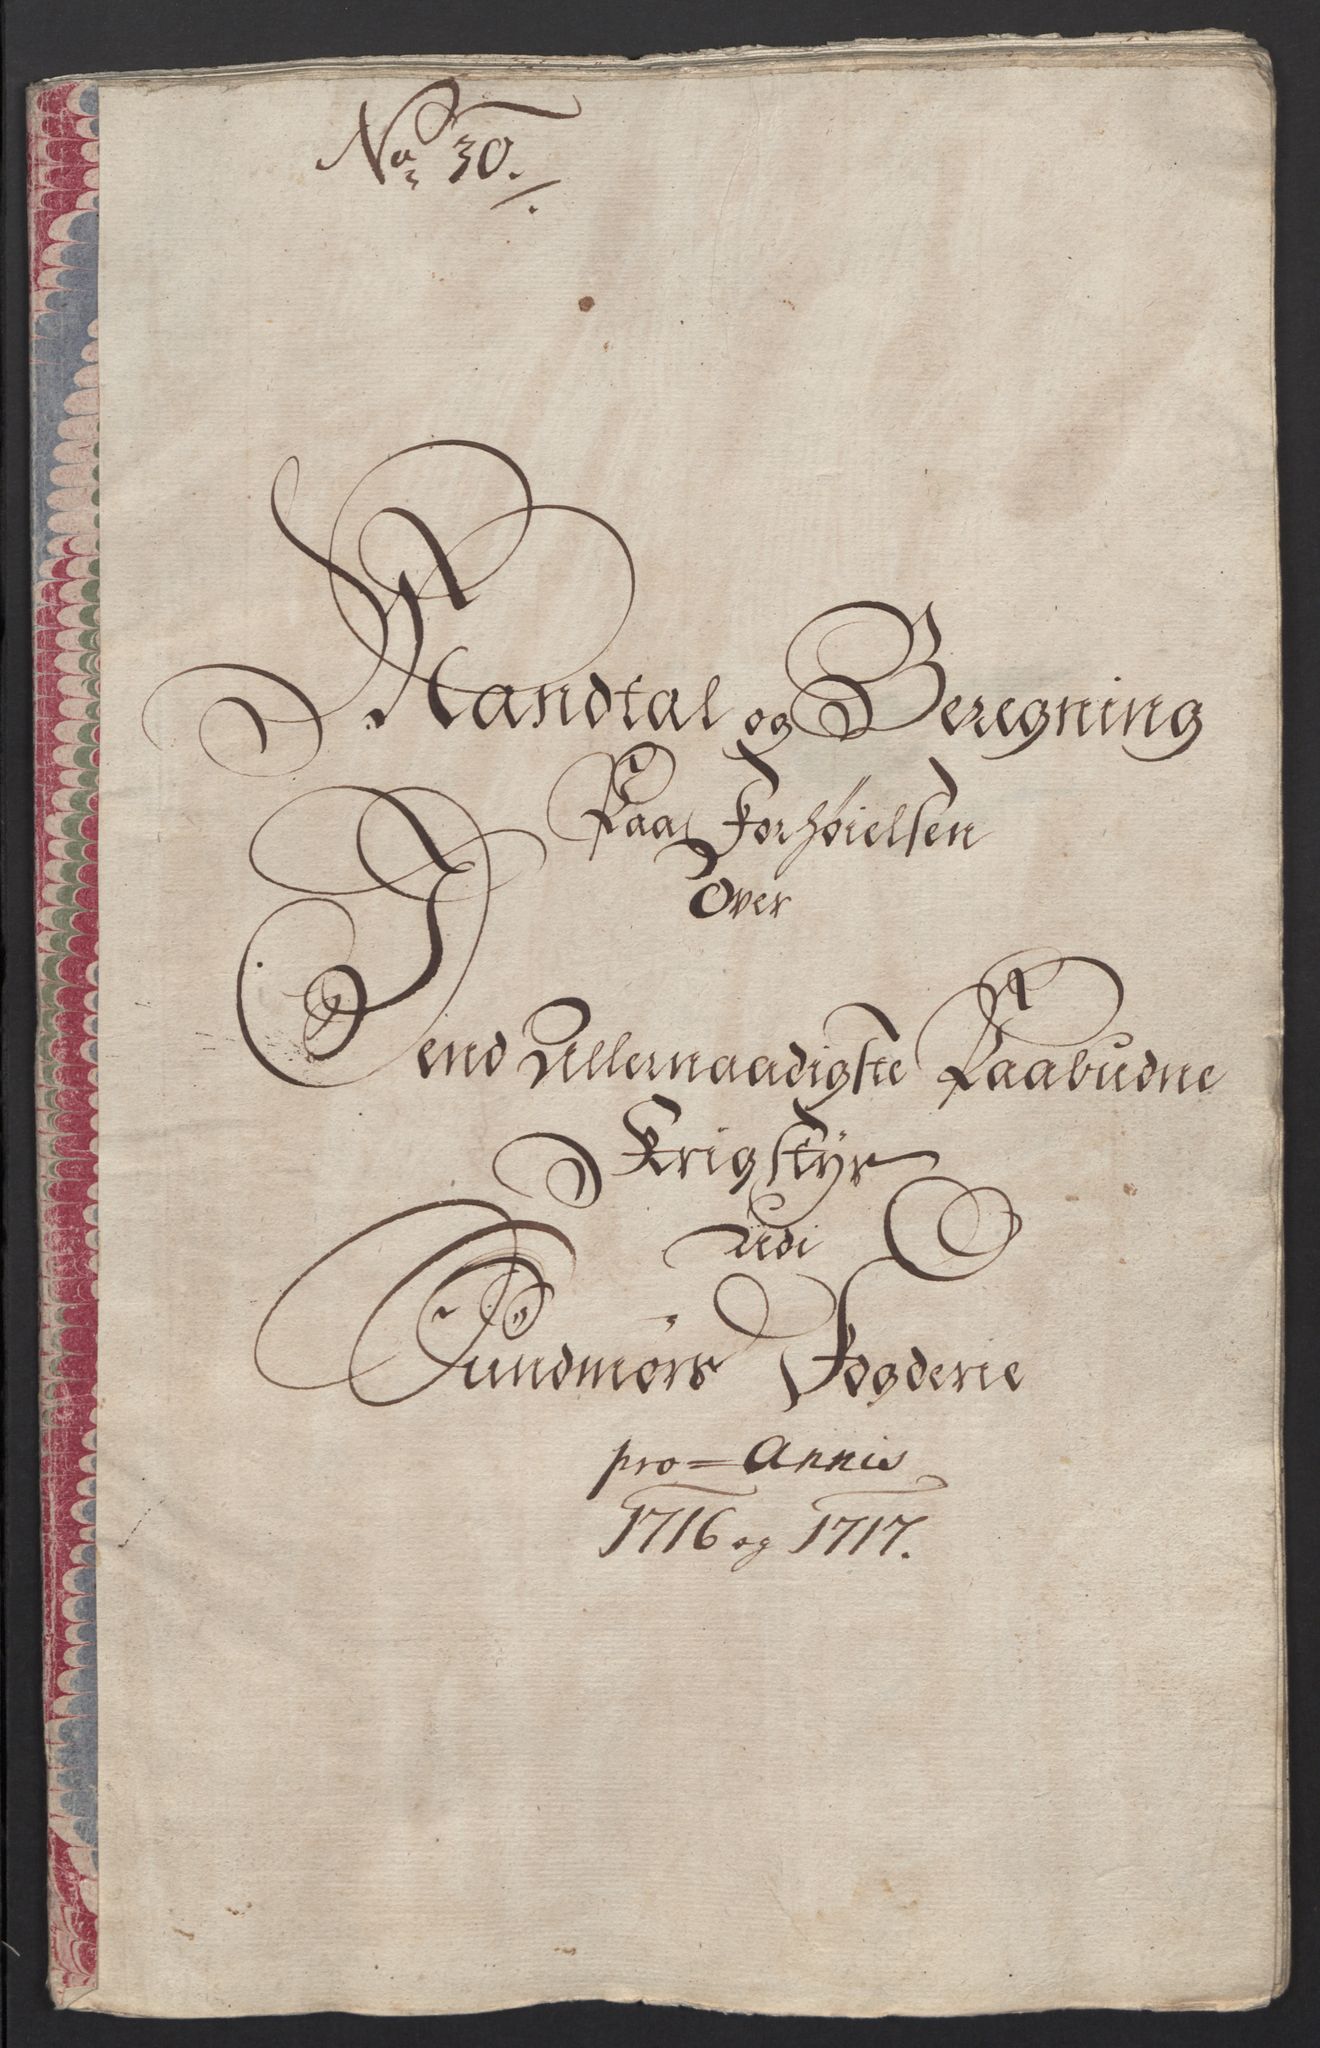 No 30.
Mandtal og Beregning
Paa Forhøielsen
Over
Dend Allernaadigste Paabudne
Krigstÿr
udi
Sundmørs Fogderie
pro = Annis
1716 og 1717.